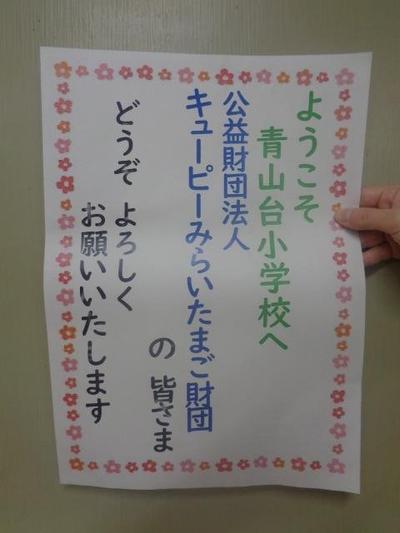 ようこそ
青山台小学校へ
公益財団法人
キューピーみらいたまご財団
の 皆さま
どうぞ よろしく
お願いいたします